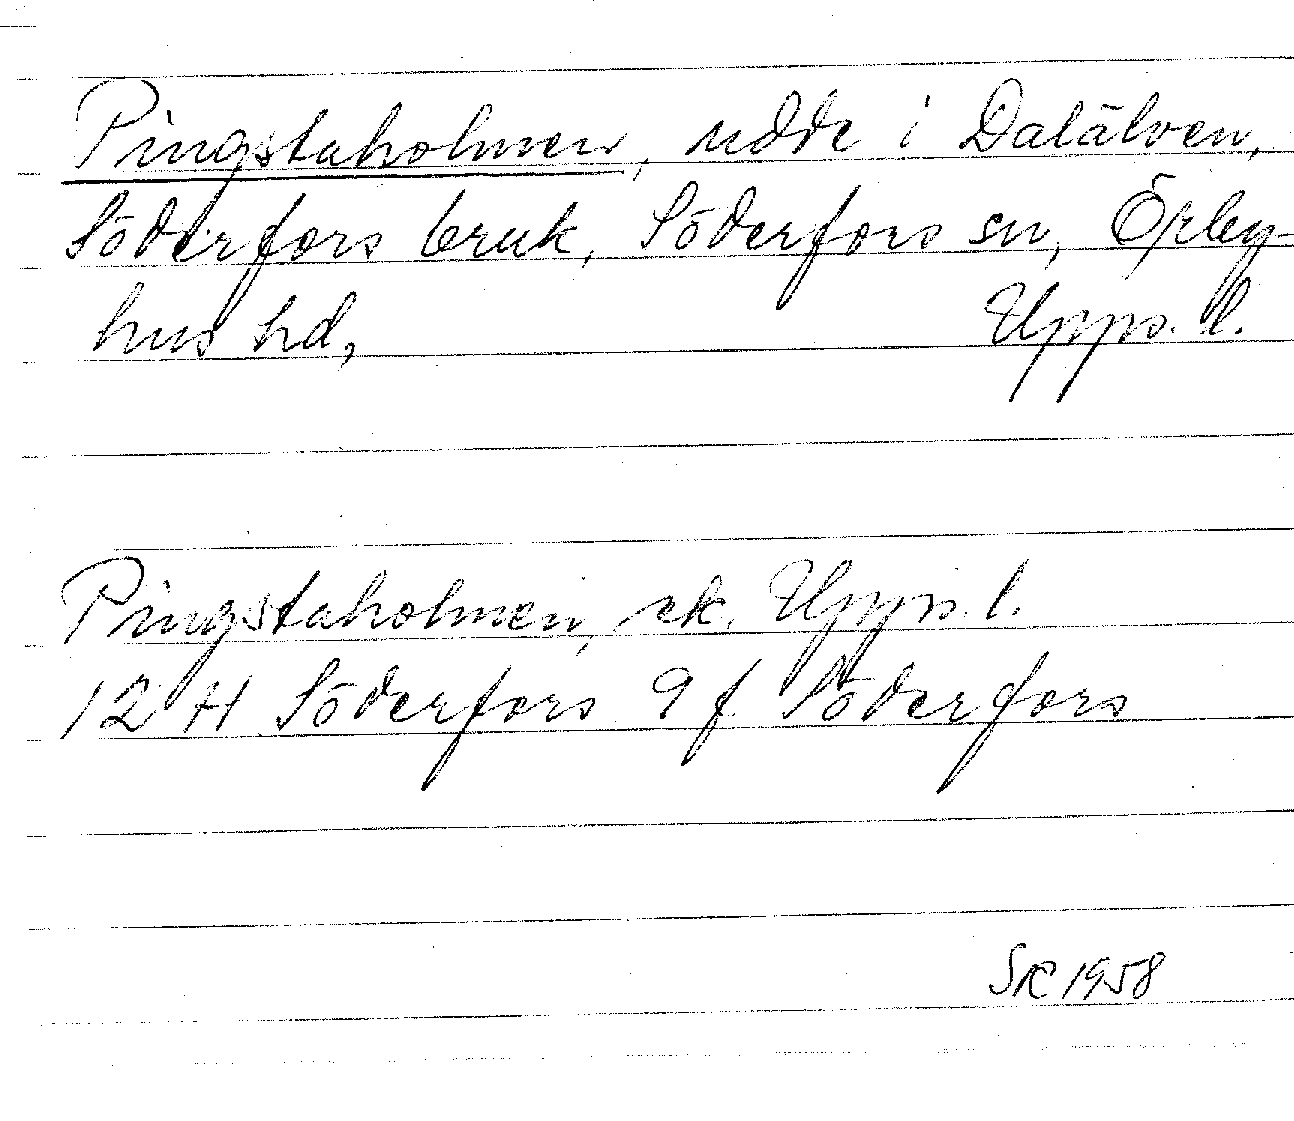 Pingstaholmen, udde i Dalälven,
Söderfors bruk, Söderfors sn, Örby-
hus hd, Upps. l.
Pingstaholmen, ek. Upps. l.
12 H Söderfors 9 f Söderfors
SK 1958